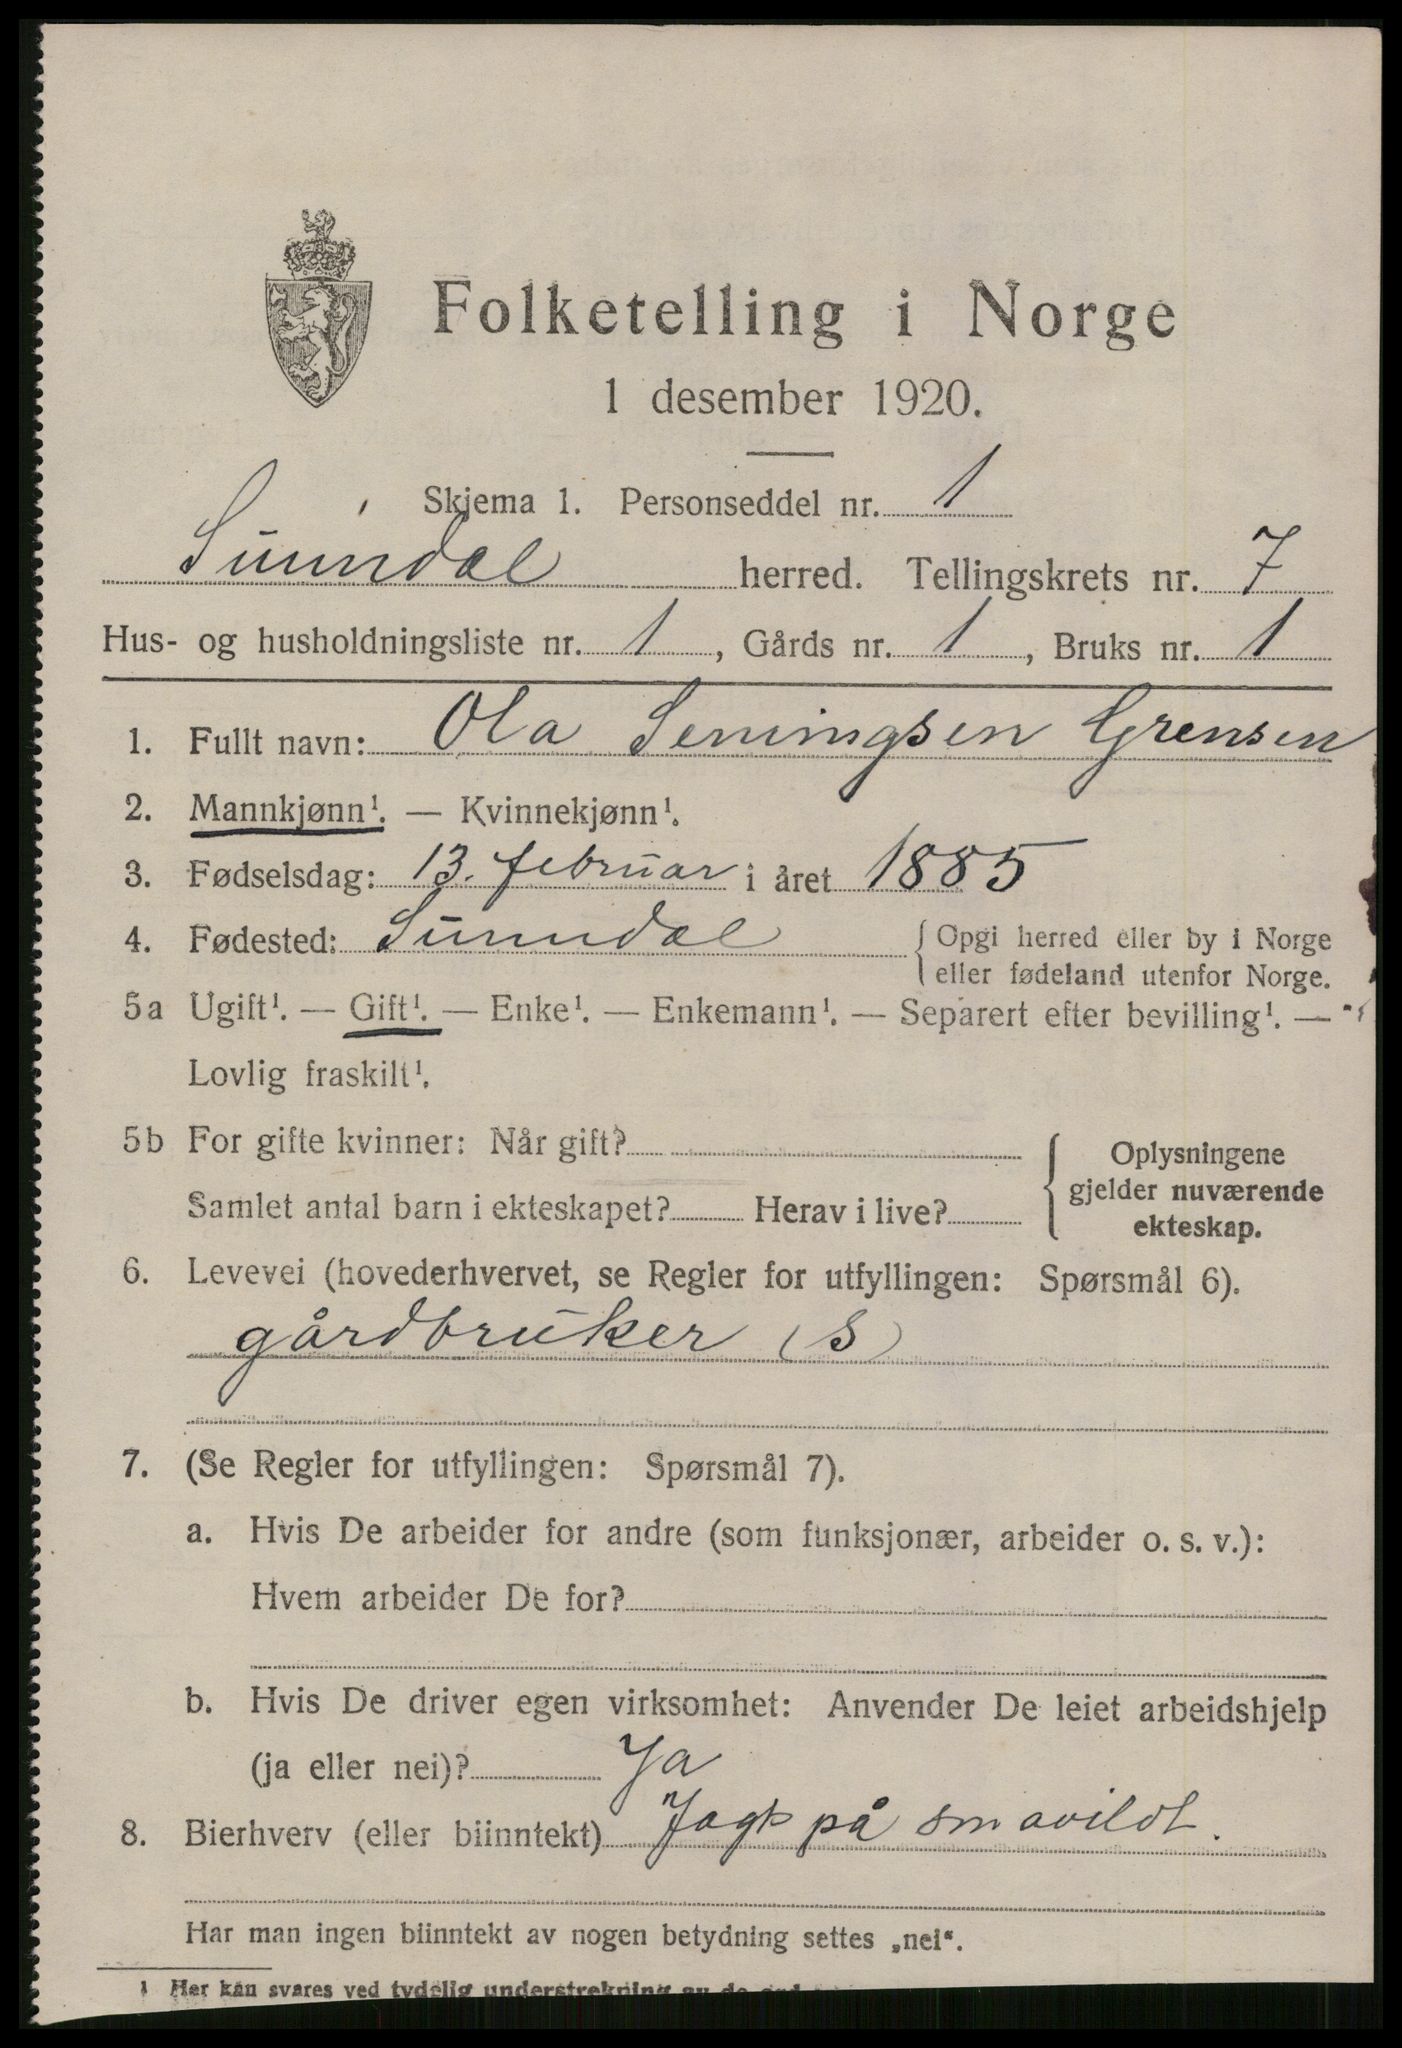 Folketelling i Norge
1 desember 1920.
Skjema 1. Personseddel nr. 1
Sunndal herred. Tellingskrets nr. 7
Hus- og husholdningsliste nr. 1, Gårds nr. 1, Bruks nr. 1
1. Fullt navn: Ola Grensen
2. Mannkjønn¹. — Kvinnekjønn¹.
3. Fødselsdag: 13. februar i året 1885
4. Fødested: Sunndal {Opgi herred eller by i Norge
eller fødeland utenfor Norge.
5a Ugift¹. — Gift¹. — Enke¹. — Enkemann¹. — Separert efter bevilling¹. —
Lovlig fraskilt¹.
5b For gifte kvinner: Når gift?
Samlet antal barn i ekteskapet? Herav i live?
{Oplysningene
gjelder nuværende
ekteskap.
6. Levevei (hovederhvervet, se Regler for utfyllingen: Spørsmål 6).
gårdbruker (S)
7. (Se Regler for utfyllingen: Spørsmål 7).
a. Hvis De arbeider for andre (som funksjonær, arbeider o. s. v.):
Hvem arbeider De for?
b. Hvis De driver egen virksomhet: Anvender De leiet arbeidshjelp
(ja eller nei)? Ja
8. Bierhverv (eller biinntekt) Jagt på smavildt.
Har man ingen biinntekt av nogen betydning settes „nei“.
1 Her kan svares ved tydelig understrekning av de